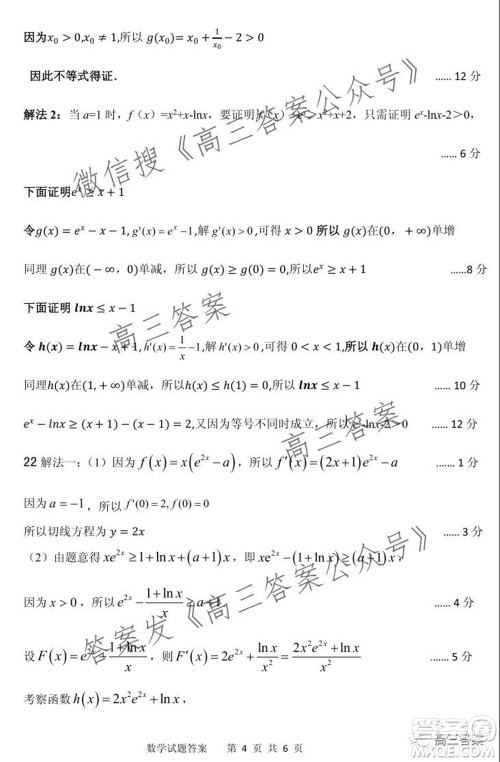 因为x₀ > 0,x₀ ≠ 1,所以 g(x₀) = x₀ + 1/x₀ − 2 > 0
因此不等式得证. …… 12 分
解法 2：当 a=1 时，f（x）=x²+x-lnx，要证明 x²+x+2，只需证明 eˣ-lnx-2＞0，
…… 6 分
下面证明eˣ ≥ x + 1
令g(x) = eˣ − x − 1, g'(x) = eˣ − 1,解 g'(x) > 0,可得 x > 0 所以 g(x)在(0，+∞)单增
同理 g(x)在(−∞，0)单减，所以 g(x) ≥ g(0) = 0,所以eˣ ≥ x + 1 ……8 分
下面证明 lnx ≤ x − 1
令 h(x) = lnx − x + 1, h'(x) = 1/x − 1,解 h'(x) > 0,可得 0 < x < 1,所以 h(x)在(0，1)单增
同理h(x)在(1, +∞)单减，所以h(x) ≤ h(1) = 0，所以lnx ≤ x − 1 …… 10 分
eˣ − lnx ≥ (x + 1) − (x − 1) = 2，又因为等号不同时成立，所以 eˣ-lnx-2＞0 …… 12 分
22 解法一：（1）因为 f(x) = x(e²ˣ − a)，所以 f'(x) = (2x+1)e²ˣ − a ……. 1 分
因为 a = −1，所以 f'(0) = 2, f(0) = 0
所以切线方程为 y = 2x …… 3 分
（2）由题意得 xe²ˣ ≥ 1 + ln x + (a+1)x，即 xe²ˣ − (1 + ln x) ≥ (a+1)x
因为 x > 0，所以 e²ˣ − (1 + ln x)/x ≥ a + 1 …… 4 分
设 F(x) = e²ˣ − (1 + ln x)/x，则 F'(x) = 2e²ˣ + ln x/x² = (2x²e²ˣ + ln x)/x² ……. 5 分
考察函数 h(x) = 2x²e²ˣ + ln x，
数学试题答案 第 4 页 共 6 页
微信搜《高三答案公众号》
高三答案
高三答案
答案发《高三答案公众号》
高三答案